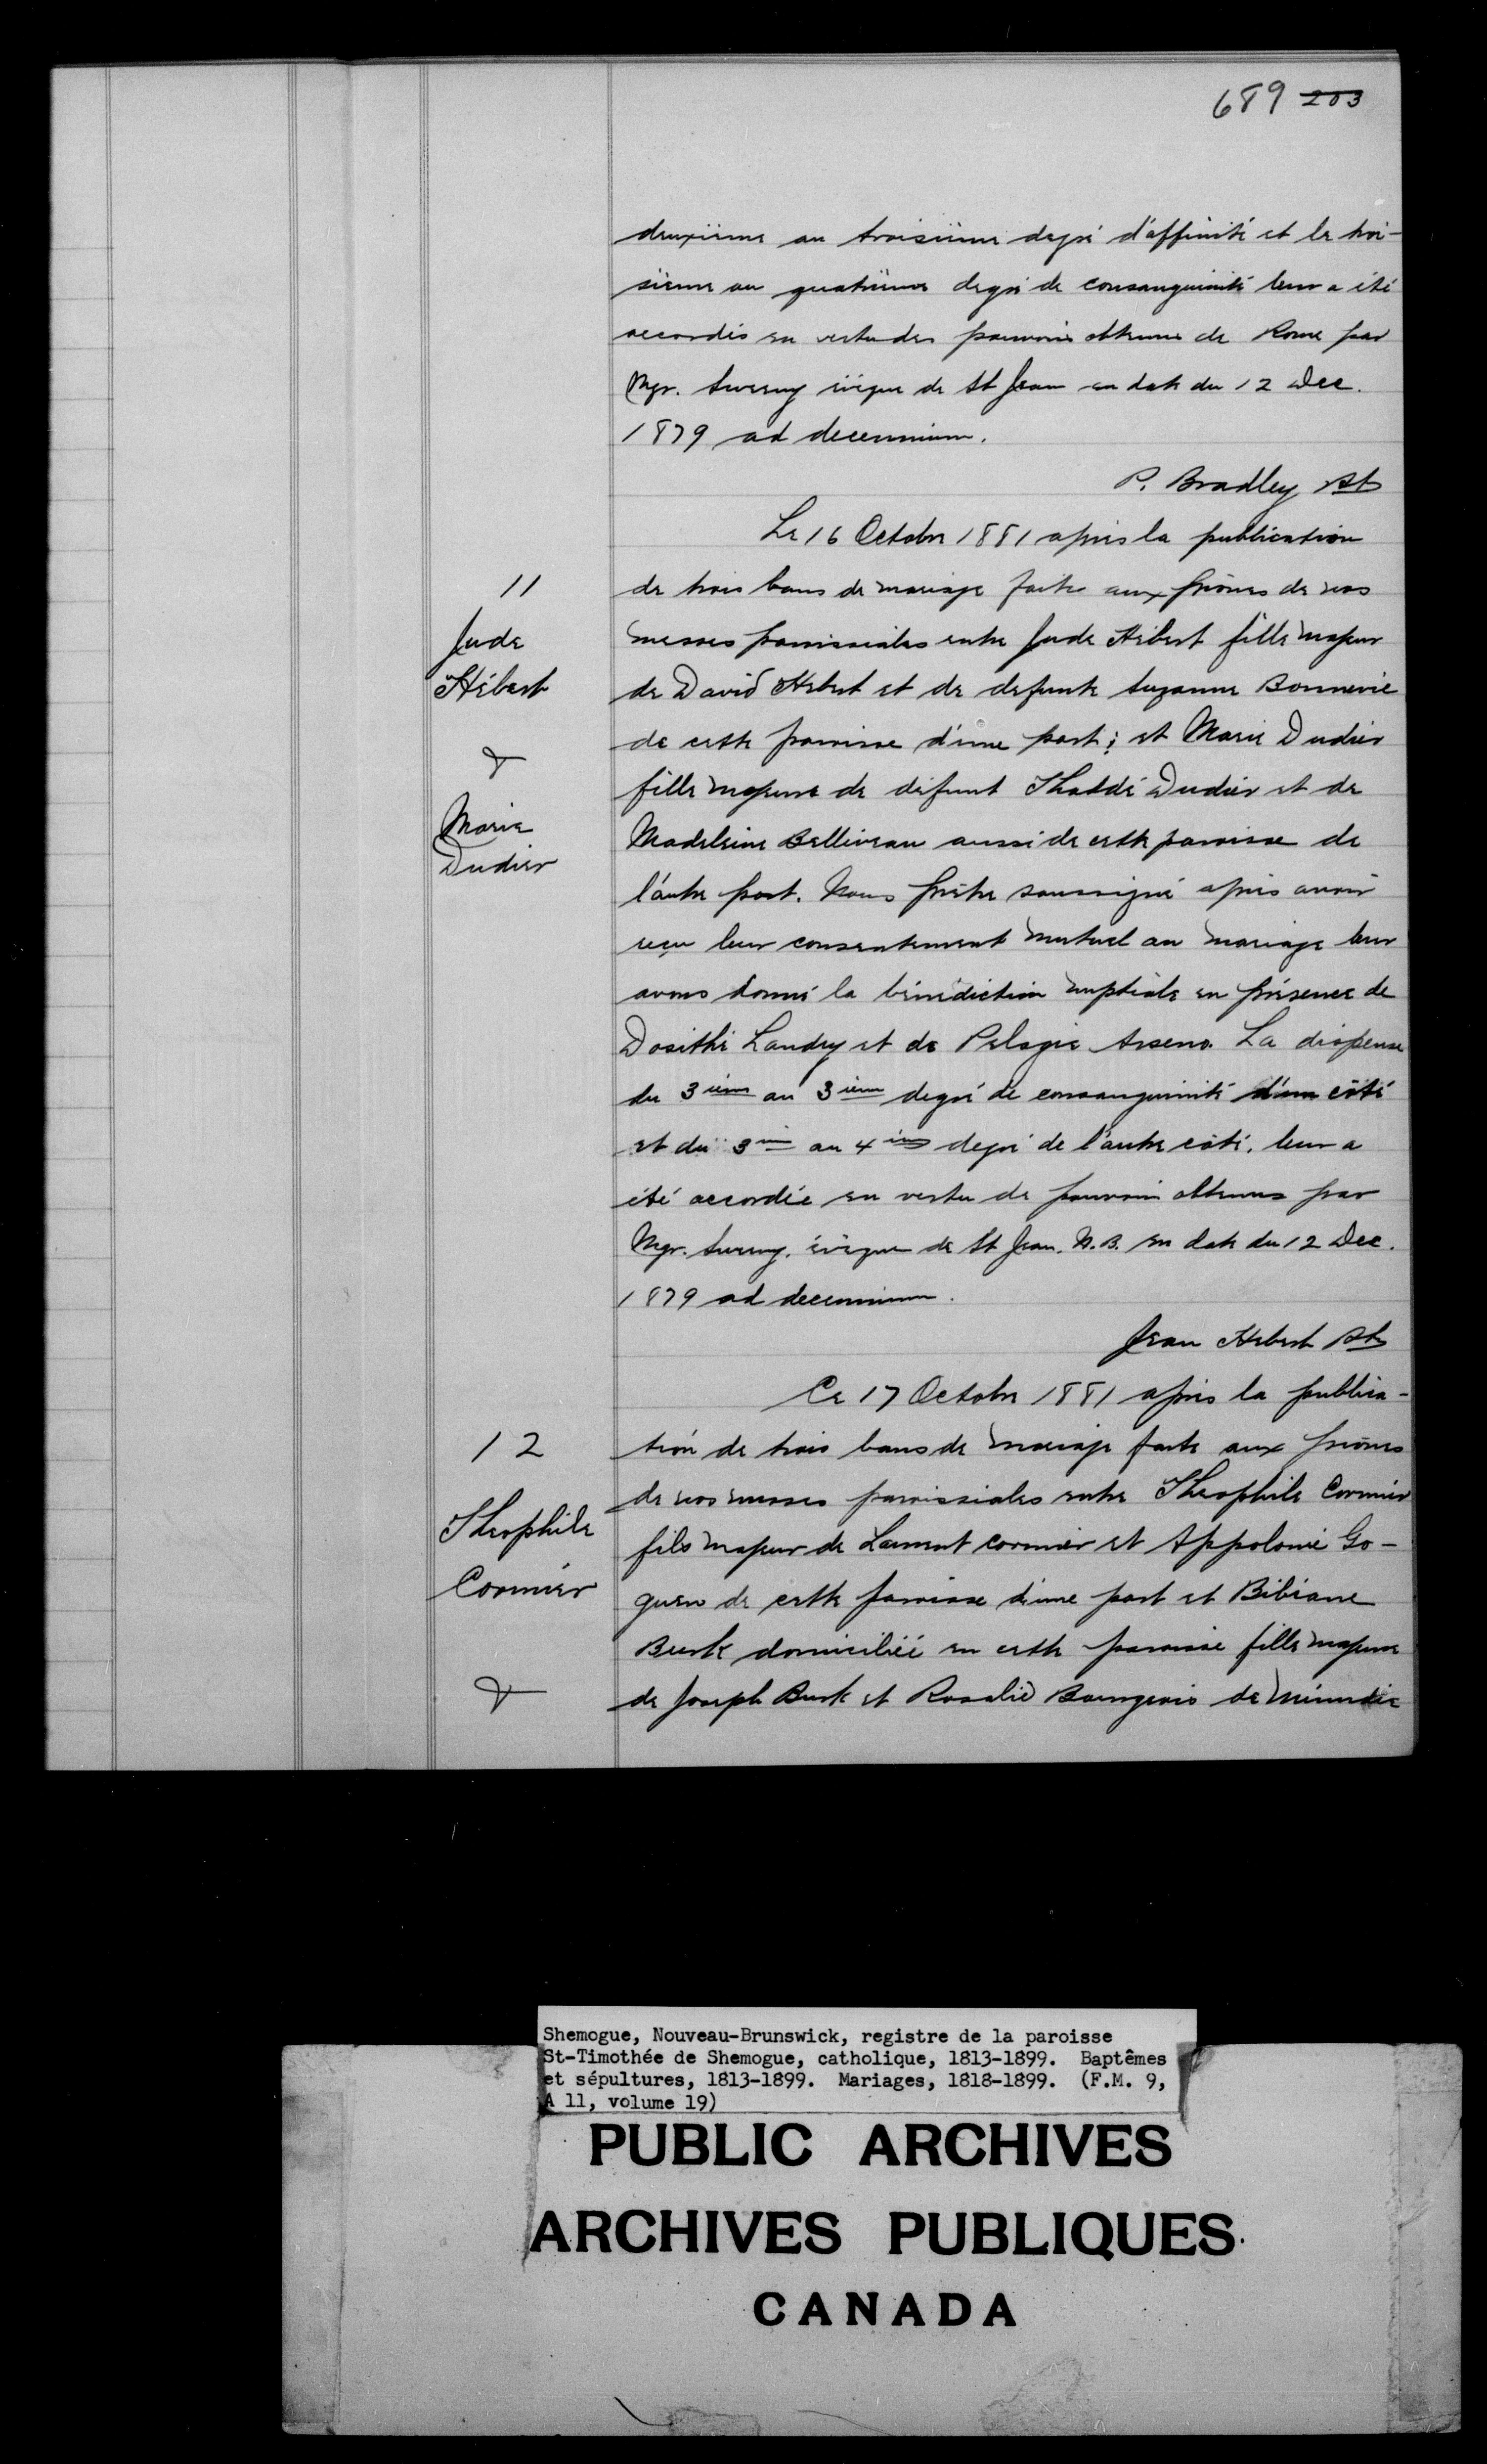 689 203
deuxième au troisième degré d'affinité et le troi-
sième au quatrième degré de consanguinité leur a été
accordés en vertu des pouvoirs obtenus de Rome par
Mgr. Sweeny évêque de St Jean en date du 12 Dec.
1879 ad decennium.
P. Bradley Pt
Le 16 Octobre 1881 après la publication
11
de trois bans de mariage faite aux prônes de nos
Jude
messes paroissiales entre Jude Hébert fille majeur
Hébert
de David Hebert et de defunte Suzanne Bonnevie
&
de cette paroisse d'une part; et Marie Dudier
fille majeure de défunt Thaddé Dudier et de
Marie
Madeleine Belliveau aussi de cette paroisse de
Dudier
l'autre part. Nous prêtre soussigné après avoir
reçu leur consentement mutuel au mariage leur
avons donné la bénédiction nuptiale en présence de
Dosithé Landry et de Pelagie Arseno. La dispense
du 3 ième au 3 ième degré de consanguinité d'un côté
et du 3 ième au 4 ième degré de l'autre côté, leur a
été accordée en vertu de pouvoirs obtenus par
Mgr. Sweeny, évêque de St Jean. N.B. en date du 12 Dec.
1879 ad decennium.
Jean Hebert Pt
Ce 17 Octobre 1881 après la publica-
12
tion de trois bans de mariage faite aux prônes
de nos messes paroissiales entre Theophile Cormier
Theophile
fils majeur de Laurent Cormier et Appolonie Go-
Cormier
guen de cette paroisse d'une part et Bibiane
Burk domiciliée en cette paroisse fille majeure
&
de Joseph Burk et Rosalie Bourgeois de
Shemogue, Nouveau-Brunswick, registre de la paroisse
St-Timothée de Shemogue, catholique, 1813-1899. Baptêmes
et sépultures, 1813-1899. Mariages, 1818-1899. (F.M. 9,
A 11, volume 19)
PUBLIC ARCHIVES
ARCHIVES PUBLIQUES
CANADA